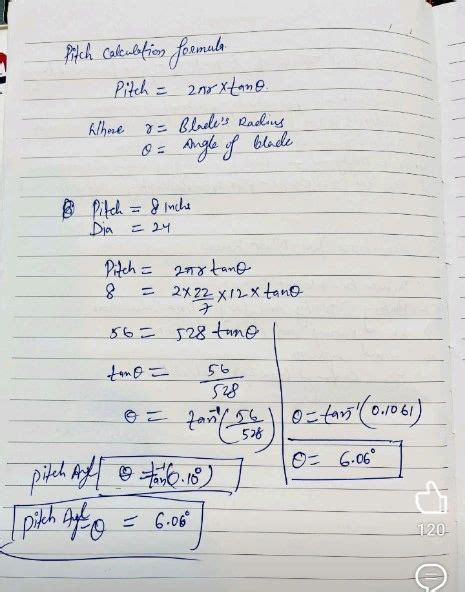 Pitch calculation formula.
Pitch = 2πr × tanθ.
Where r = Blade's Radius
θ = Angle of blade
Pitch = 8 Inche
Dia = 24
Pitch = 2πr tanθ
8 = 2×22/7 ×12× tanθ
56 = 528 tanθ
tanθ = 56/528
θ = tan⁻¹(56/528)
θ = tan⁻¹(0.1061)
θ = 6.06°
Pitch Angl θ = tan⁻¹(0.10°)
Pitch Agl θ = 6.06°
120